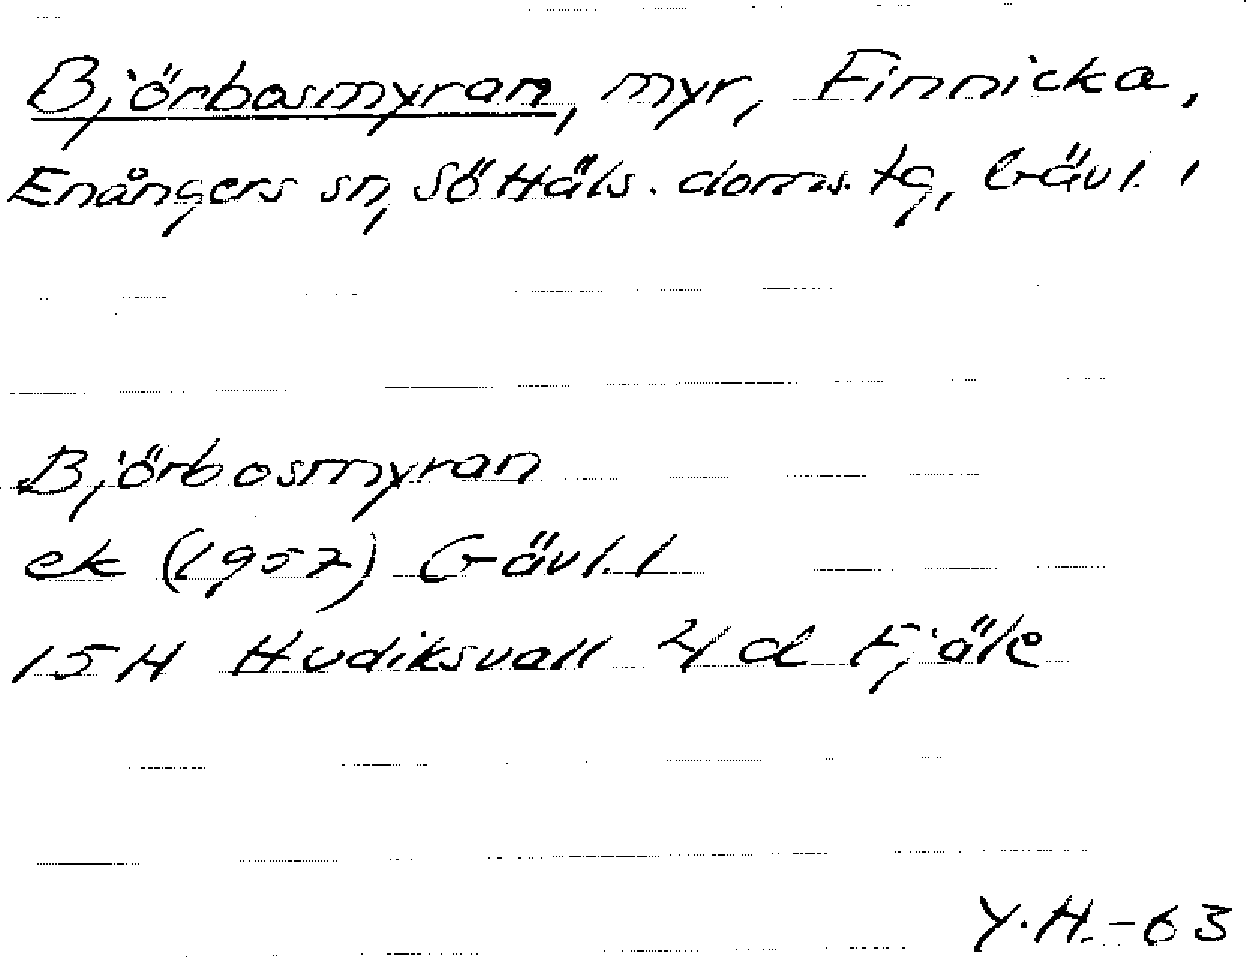 Björbosmyran, myr, Finnicka,
Enångers sn, SöHäls. doms.tg, Gävl. l
Björbosmyran
ek (1957) Gävl. l
15H Hudiksvall 4d Fjäle
Y.H.-63